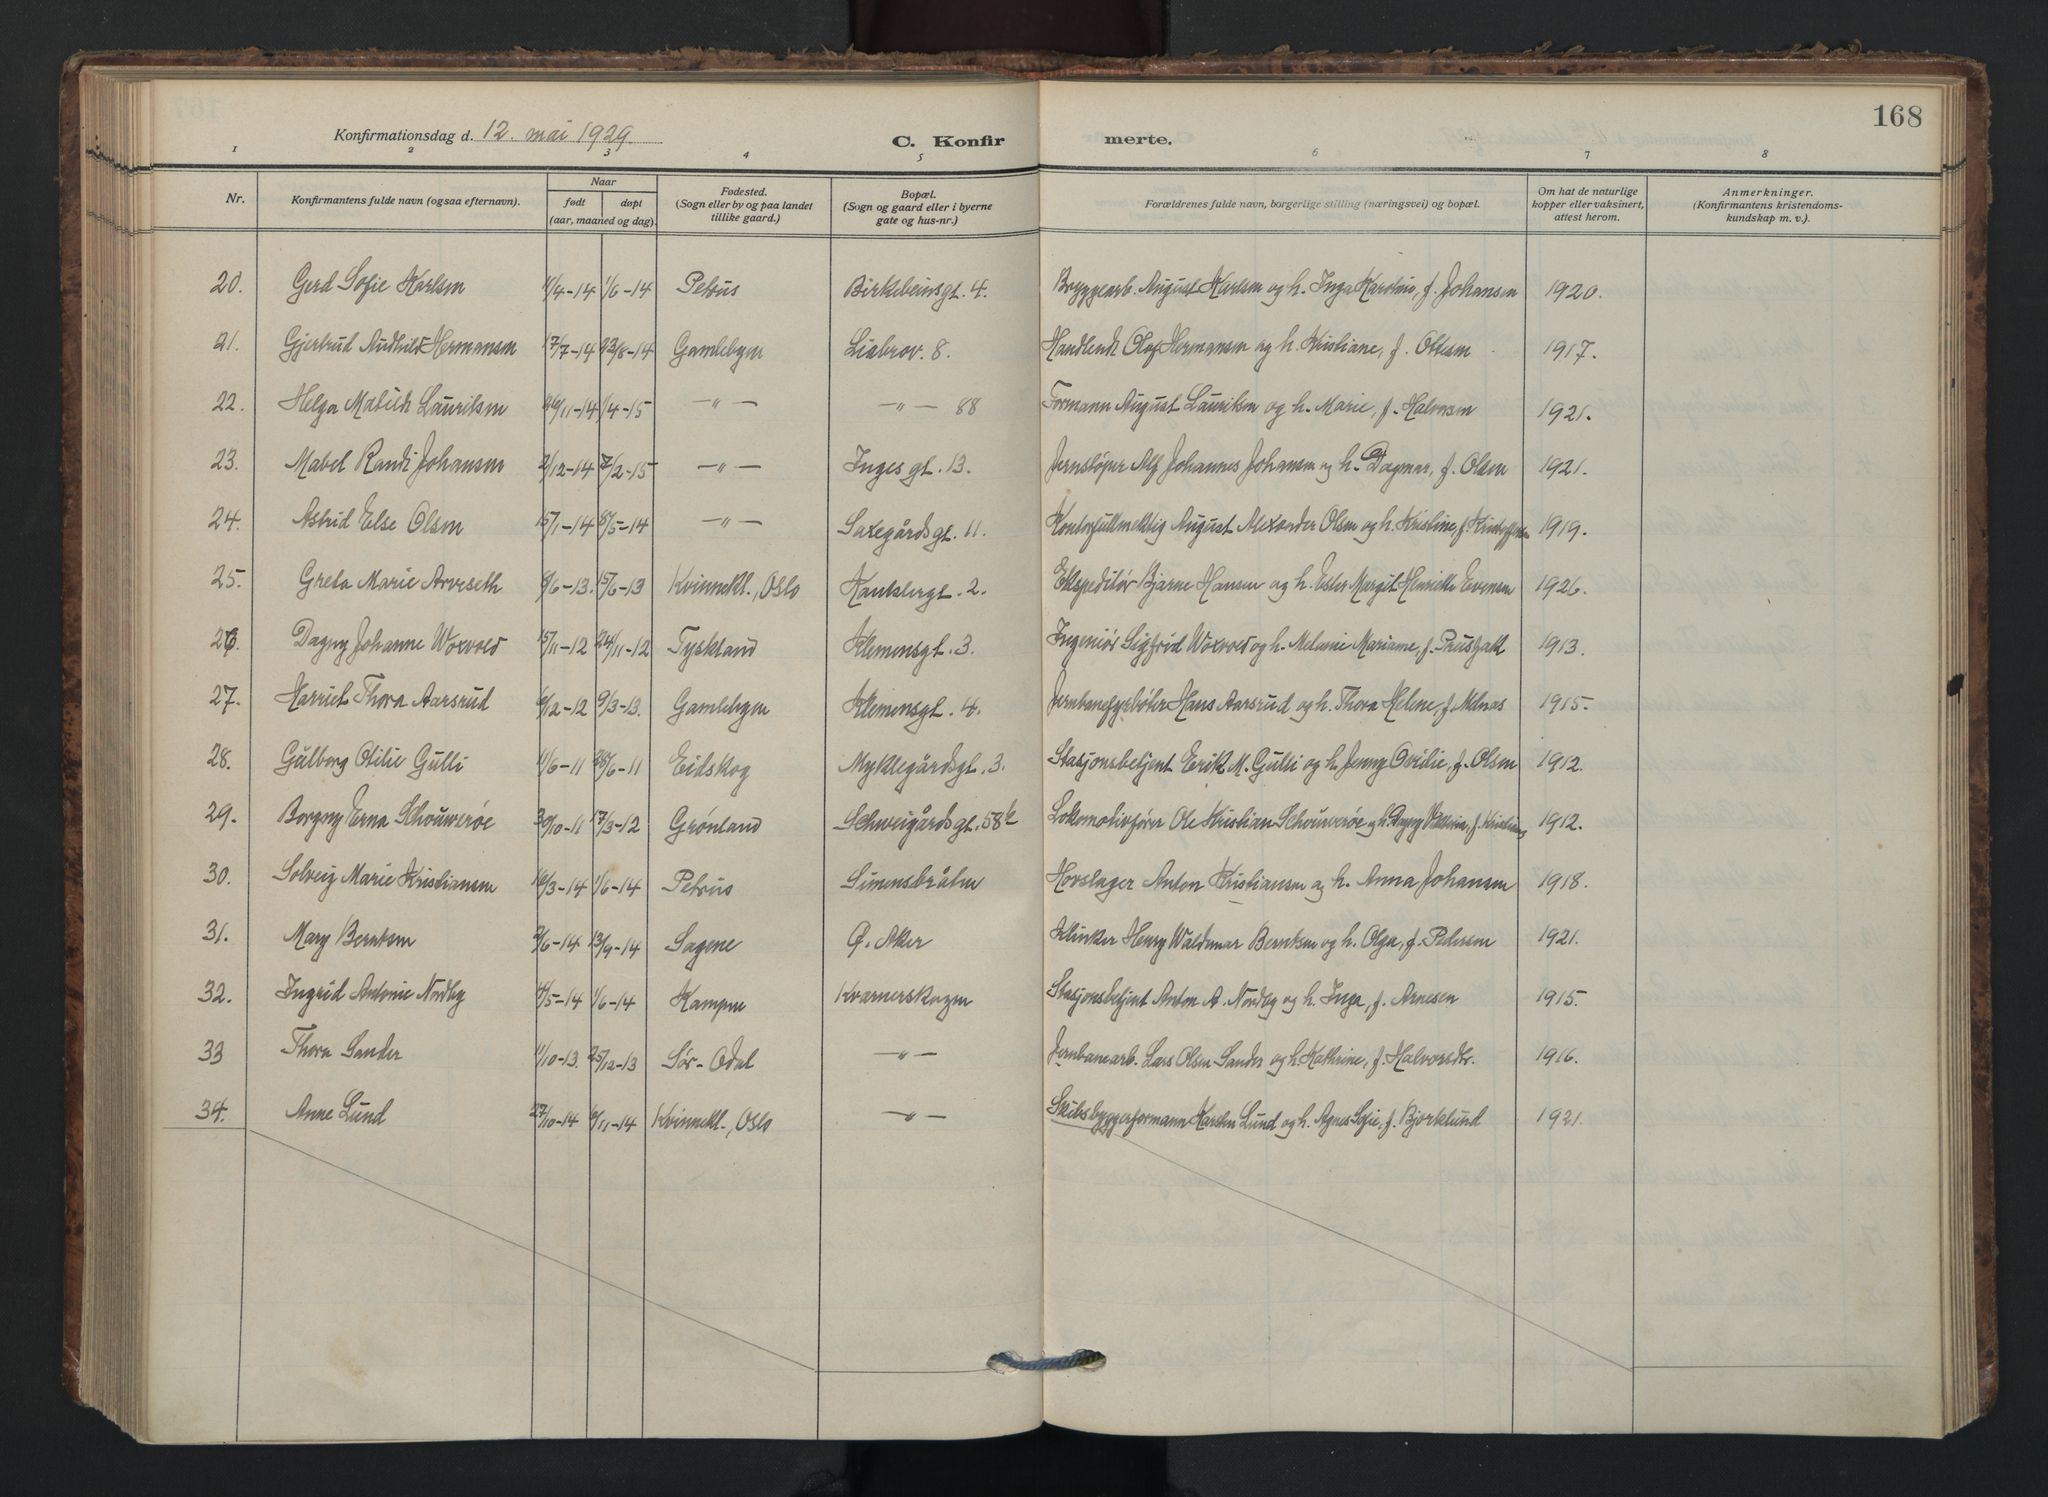 168
Konfirmationsdag d. 12. mai 1929.
C. Konfir merte.
1 2 3 4 5 6 7 8
Nr. Konfirmantens fulde navn (ogsaa efternavn). Naar født døpt (aar, maaned og dag). Fødested. (Sogn eller by og paa landet tillike gaard.) Bopæl. (Sogn og gaard eller i byerne gate og hus-nr.) Forældrenes fulde navn, borgerlige stilling (næringsvei) og bopæl. Om hat de naturlige kopper eller vaksinert, attest herom. Anmerkninger. (Konfirmantens kristendoms- kundskap m. v.).
20. Gerd Sofie Karlsen 11/4-14 1/6-14 Petrus Birkebeinsgt. 4. Bryggearb. August Karlsen og h. Inga Karoline, f. Johansen 1920.
21. Gjertrud Audhild Hermansen 17/7-14 23/8-14 Gamlebyen Liabrov. 8. Handlende Olaf Hermansen og h. Kristiane, f. Ottesen 1917.
22. Helga Matilde Lauritsen 26/11-14 1/4-15 -"- -"- 88 Formann August Lauritsen og h. Marie, f. Halvorsen 1921.
23. Mabel Randi Johansen 2/12-14 7/2-15 -"- Inges gt. 13. Jernstøper Alf Johannes Johansen og h. Dagmar, f. Olsen 1921.
24. Astrid Else Olsen 15/1-14 8/5-14 -"- Saxegårdsgt. 11. Kontorfullmektig August Alexander Olsen og h. Kristine, f. Kristoffersen 1919.
25. Greta Marie Arveseth 6/6-13. 15/6-13 Kvinnekl., Oslo Kantslergt. 2. Ekspeditør Bjarne Hansen og h. Ester Margit Henriette Evensen 1926.
26. Dagny Johanne Woxvold 15/11-12 24/11-12 Tyskland Klemensgt. 3. Ingeniør Sigfrid Woxvold og h. Melanie Mariane, f. 1913.
27. Harriet Thora Aarsrud 6/12-12 9/3-13. Gamlebyen Klemensgt. 4. Jernbanefyrbøter Hans Aarsrud og h. Thora Helene, f. Melnæs 1915.
28. Gulborg Otilie Gulli 11/6-11 28/6-11 Eidskog Myklegårdsgt. 3. Stasjonsbetjent Erik M. Gulli og h. Jenny Ovidie, f. Olsen 1912.
29. Borgny Erna Schouwerøe 30/10-11 17/3-12 Grønland Schweigårdsgt. 58b Lokomotivfører Ole Kristian Schouwerøe og h. Dagny f. 1912.
30. Solveig Marie Kristiansen 16/3-14 1/6-14 Petrus Simensbråten Hovslager Anton Kristiansen og h. Anna Johansen 1918.
31. Mary Berntsen 2/6-14 13/9-14 Sagene Ø. Aker Klinker Henry Waldemar Berntsen og h. Olga, f. Pedersen 1921.
32. Ingrid Antonie Nordby 4/5-14 1/6-14 Kampen Kværnerskogen Stasjonsbetjent Anton A. Nordby og h. Inga, f. Arnesen 1915.
33 Thora Sander 11/10-13. 25/12-13 Sør-Odal -"- Jernbanearb. Lars Olsen Sander og h. Kathrine, f. Halvorsdtr. 1916.
34. Anne Lund 27/10-14 6/11-14 Kvinnekl., Oslo -"- Skibsbyggerformann Karsten Lund og h. Agnes Sofie, f. Bjorklund 1921.